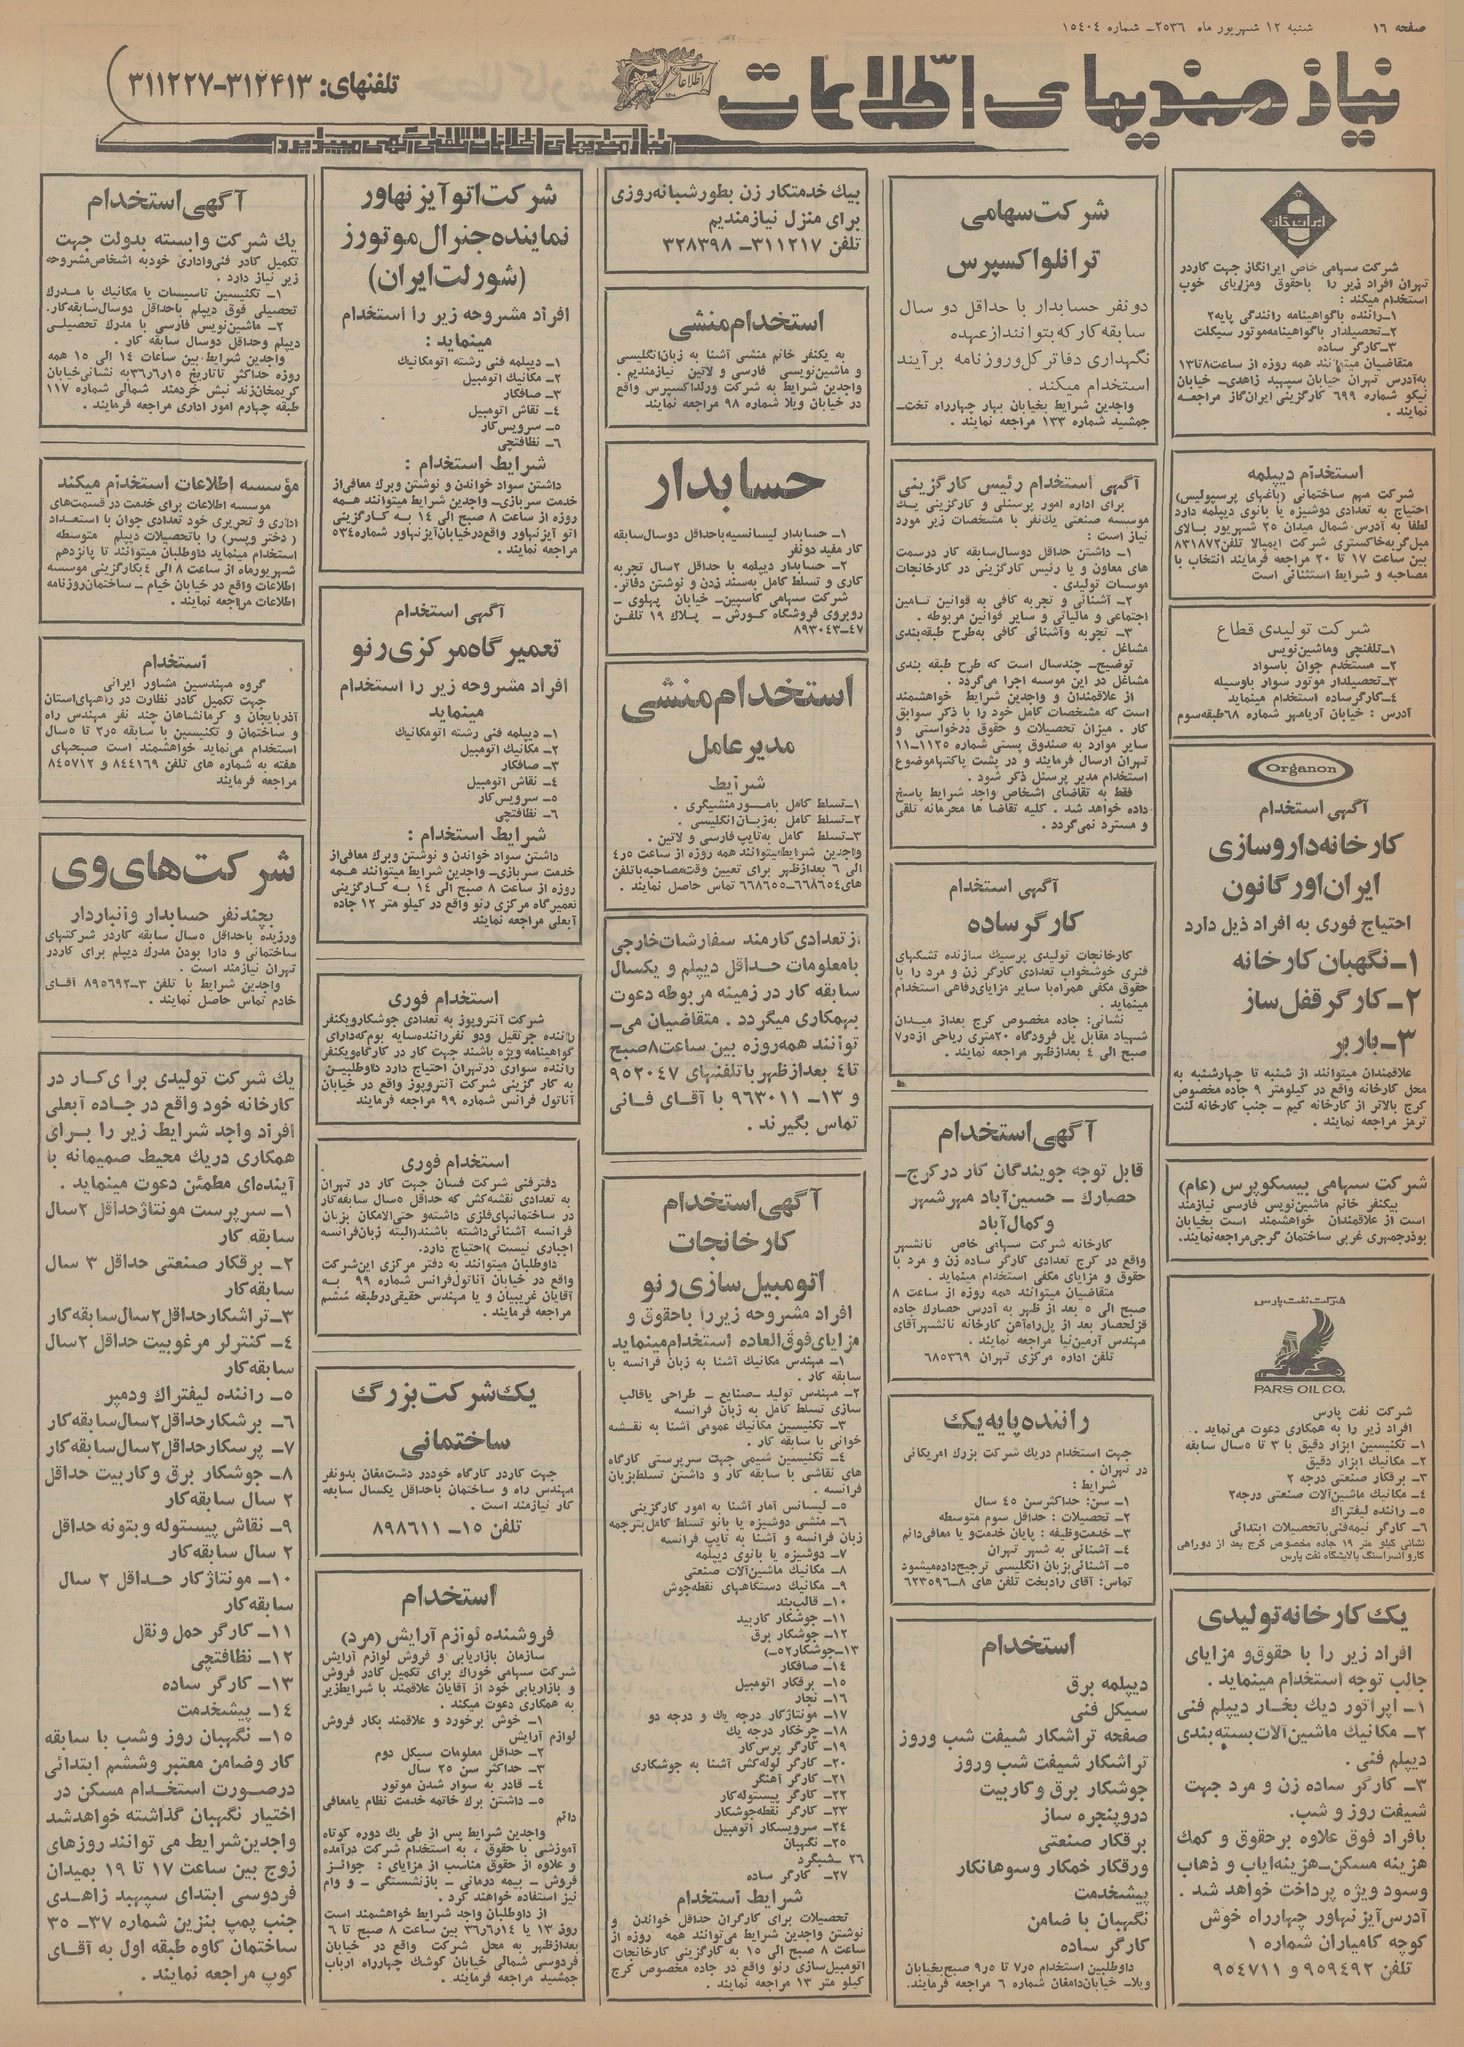 صفحه ۱۶
شنبه ۱۲ شهریور ماه ۲۵۳۶ــ شماره ۱۵۴۰۴
نیازمندیهای اطلاعات
اطلاعات
تلفنهای: ۳۱۲۴۱۳-۳۱۱۲۲۷
نیازمندیهای اطلاعات تلفنی آگهی میپذیرد
ایران گاز
شرکت سهامی خاص ایرانگاز جهت کاردر
تهران افراد زیر را باحقوق ومزایای خوب
استخدام میکند:
۱ــ راننده باگواهینامه رانندگی پایه۲
۲ــ تحصیلدار باگواهینامه‌موتور سیکلت
۳ــ کارگر ساده
متقاضیان میتوانند همه روزه از ساعت۸تا۱۳
به‌آدرس تهران خیابان سپهبد زاهدی- خیابان
نیکو شماره ۶۹۹ کارگزینی ایران‌گاز مراجعه
نمایند .
استخدام دیپلمه
شرکت مهم ساختمانی (باغهای پرسپولیس)
احتیاج به تعدادی دوشیزه یا بانوی دیپلمه دارد
لطفا به آدرس شمال میدان ۲۵ شهریور بالای
مبل‌گربه‌خاکستری شرکت ایمپالا تلفن۸۳۱۸۷۲
بین ساعت ۱۷ تا ۲۰ مراجعه فرمایند انتخاب با
مصاحبه و شرایط استثنائی است
شرکت تولیدی قطاع
۱ــ تلفنچی وماشین‌نویس
۲ــ مستخدم جوان باسواد
۳ــ تحصیلدار موتور سوار باوسیله
۴ــ کارگرساده استخدام مینماید
آدرس : خیابان آریامهر شماره ۶۸طبقه‌سوم
Organon
آگهی استخدام
کارخانه داروسازی
ایران اورگانون
احتیاج فوری به افراد ذیل دارد
۱ــ نگهبان کارخانه
۲ــ کارگر قفل‌ساز
۳ــ باربر
علاقمندان میتوانند از شنبه تا چهارشنبه به
محل کارخانه واقع در کیلومتر ۹ جاده مخصوص
کرج بالاتر از کارخانه کیم ــ جنب کارخانه لنت
ترمز مراجعه نمایند .
شرکت سهامی بیسکوپرس (عام)
بیکنفر خانم ماشین‌نویس فارسی نیازمند
است از علاقمندان خواهشمند است بخیابان
بوذرجمهری غربی ساختمان گرجی‌مراجعه‌نمایند.
شرکت نفت پارس
PARS OIL CO.
شرکت نفت پارس
افراد زیر را به همکاری دعوت می‌نماید .
۱ــ تکنیسین ابزار دقیق با ۳ تا ۵سال سابقه
۲ــ مکانیك ابزار دقیق
۳ــ برقکار صنعتی درجه ۲
۴ــ مکانیك ماشین‌آلات صنعتی درجه۲
۵ــ راننده لیفتراك
۶ــ کارگر نیمه‌فنی باتحصیلات ابتدائی
نشانی کیلو متر ۱۹ جاده مخصوص کرج بعد از دوراهی
کاروانسراسنگ پالایشگاه نفت پارس
یك کارخانه تولیدی
افراد زیر را با حقوق‌و مزایای
جالب توجه استخدام مینماید .
۱ــ اپراتور دیك بخار دیپلم فنی
۲ــ مکانیك ماشین‌آلات‌بسته‌بندی
دیپلم فنی .
۳ــ کارگر ساده زن و مرد جهت
شیفت روز و شب.
بافراد فوق علاوه برحقوق و کمك
هزینه مسکن‌ــ هزینه‌ایاب و ذهاب
وسود ویژه پرداخت خواهد شد .
آدرس‌آیزنهاور چهارراه خوش
کوچه کامیاران شماره ۱
تلفن ۹۵۹۴۹۲ و ۹۵۴۷۱۱
شرکت سهامی
ترانلواکسپرس
دو نفر حسابدار با حداقل دو سال
سابقه کار که بتوانند از عهده
نگهداری دفاتر کل‌و روزنامه برآیند
استخدام میکند .
واجدین شرایط بخیابان بهار چهارراه تخت-
جمشید شماره ۱۳۳ مراجعه نمایند .
آگهی استخدام رئیس کارگزینی
برای اداره امور پرسنلی و کارگزینی یك
موسسه صنعتی یك‌نفر با مشخصات زیر مورد
نیاز است :
۱ــ داشتن حداقل دوسال‌سابقه کار درسمت
های معاون و یا رئیس کارگزینی در کارخانجات
موسسات تولیدی .
۲ــ آشنائی و تجربه کافی به قوانین تامین
اجتماعی و مالیاتی و سایر قوانین مربوطه .
۳ــ تجربه وآشنائی کافی به‌طرح طبقه‌بندی
مشاغل .
توضیح‌ــ چندسال است که طرح طبقه بندی
مشاغل در این موسسه اجرا می‌گردد .
از علاقمندان و واجدین شرایط خواهشمند
است که مشخصات کامل خود را با ذکر سوابق
کار . میزان تحصیلات و حقوق درخواستی و
سایر موارد به صندوق پستی شماره ۱۱۲۵-۱۱
تهران ارسال فرمایند و در پشت پاکتهاموضوع
استخدام مدیر پرسنل ذکر شود .
فقط به تقاضای اشخاص واجد شرایط پاسخ
داده خواهد شد . کلیه تقاضا ها محرمانه تلقی
و مسترد نمی‌گردد .
آگهی استخدام
کارگر ساده
کارخانجات تولیدی پرسیك سازنده تشکهای
فنری خوشخواب تعدادی کارگر زن و مرد را با
حقوق مکفی همراه‌با سایر مزایای‌رفاهی استخدام
مینماید .
نشانی: جاده مخصوص کرج بعداز میدان
شهیاد مقابل پل فرودگاه ۲۰متری ریاحی از۷٫۵
صبح الی ۴ بعدازظهر مراجعه نمایند .
آگهی استخدام
قابل توجه جویندگان کار در کرج-
حصارك ــ حسین‌آباد مهرشهر
وکمال‌آباد
کارخانه شرکت سهامی خاص نانشهر
واقع در کرج تعدادی کارگر ساده زن و مرد با
حقوق و مزایای مکفی استخدام مینماید .
متقاضیان میتوانند همه روزه از ساعت ۸
صبح الی ۵ بعد از ظهر به آدرس حصارك جاده
قزلحصار بعد از پل‌راه‌آهن کارخانه نانشهرآقای
مهندس آرمین‌نیا مراجعه نمایند .
تلفن اداره مرکزی تهران ۶۸۵۳۶۹
راننده پایه یك
جهت استخدام دریك شرکت بزرك امریکائی
در تهران .
شرایط :
۱ــ سن: حداکثرسن ۴۵ سال
۲ــ تحصیلات : حداقل سوم متوسطه
۳ــ خدمت‌وظیفه : پایان خدمت‌و یا معافی‌دائم
۴ــ آشنائی به شهر تهران
۵ــ آشنائی‌بزبان انگلیسی ترجیح‌داده‌میشود
تماس: آقای رادبخت تلفن های ۸-۶۲۳۵۹۶
استخدام
دیپلمه برق
سیکل فنی
صفحه تراشکار شیفت شب وروز
تراشکار شیفت شب وروز
جوشکار برق وکاربیت
دروپنجره ساز
برقکار صنعتی
ورقکار خمکار وسوهانکار
پیشخدمت
نگهبان با ضامن
کارگر ساده
داوطلبین استخدام ۷٫۵ تا ۹٫۵ صبح‌بخیابان
ویلا- خیابان‌دامغان شماره ۶ مراجعه فرمایند.
بیك خدمتکار زن بطور شبانه‌روزی
برای منزل نیازمندیم
تلفن ۳۱۱۲۱۷ــ ۳۲۸۳۹۸
استخدام منشی
به یکنفر خانم منشی آشنا به زبان‌انگلیسی
و ماشین‌نویسی فارسی و لاتین نیازمندیم .
واجدین شرایط به شرکت ورلداکسپرس واقع
در خیابان ویلا شماره ۹۸ مراجعه نمایند
حسابدار
۱ــ حسابدار لیسانسیه باحداقل دوسال‌سابقه
کار مفید دونفر
۲ــ حسابدار دیپلمه با حداقل ۲سال تجربه
کاری و تسلط کامل به‌سند زدن و نوشتن دفاتر.
شرکت سهامی کاسپین‌ــ خیابان پهلوی ــ
روبروی فروشگاه کورش ــ پلاك ۱۹ تلفن
۴۷-۸۹۳۰۴۳
استخدام منشی
مدیر عامل
شرایط
۱ــ تسلط کامل بامور منشیگری .
۲ــ تسلط کامل به‌زبان‌انگلیسی .
۳ــ تسلط کامل به‌تایپ فارسی و لاتین .
واجدین شرایط‌میتوانند همه روزه از ساعت ۴٫۵
الی ۶ بعدازظهر برای تعیین وقت‌مصاحبه باتلفن
های۶۶۸۶۵۴-۶۶۸۶۵۵ تماس حاصل نمایند .
از تعدادی کارمند سفارشات‌خارجی
بامعلومات حداقل دیپلم و یکسال
سابقه کار در زمینه مربوطه دعوت
بهمکاری میگردد . متقاضیان می-
توانند همه‌روزه بین ساعت۸صبح
تا۴ بعدازظهر با تلفنهای ۹۵۲۰۴۷
و ۱۳ــ ۹۶۳۰۱۱ با آقای فانی
تماس بگیرند .
آگهی استخدام
کارخانجات
اتومبیل سازی رنو
افراد مشروحه زیر را باحقوق و
مزایای فوق‌العاده استخدام مینماید
۱ــ مهندس مکانیك آشنا به زبان فرانسه با
سابقه کار .
۲ــ مهندس تولید ــ صنایع ــ طراحی یاقالب
سازی تسلط کامل به زبان فرانسه
۳ــ تکنیسین مکانیك عمومی آشنا به نقشه
خوانی با سابقه کار .
۴ــ تکنیسین شیمی جهت سرپرستی کارگاه
های نقاشی با سابقه کار و داشتن تسلط‌بزبان
فرانسه .
۵ــ لیسانس آمار آشنا به امور کارگزینی
۶ــ منشی دوشیزه یا بانو تسلط کامل‌بترجمه
زبان فرانسه و آشنا به تایپ فرانسه
۷ــ دوشیزه یا بانوی دیپلمه
۸ــ مکانیك ماشین‌آلات صنعتی
۹ــ مکانیك دستگاههای نقطه‌جوش
۱۰ــ قالب‌بند
۱۱ــ جوشکار کاربید
۱۲ــ جوشکار برق
۱۳ــ جوشکار۵۲ــ)
۱۴ــ صافکار
۱۵ــ برقکار اتومبیل
۱۶ــ نجار
۱۷ــ مونتاژکار درجه یك و درجه دو
۱۸ــ چرخکار درجه یك
۱۹ــ کارگر پرس‌کار
۲۰ــ کارگر لوله‌کش آشنا به جوشکاری
۲۱ــ کارگر آهنگر
۲۲ــ کارگر پیستوله‌کار
۲۳ــ کارگر نقطه‌جوشکار
۲۴ــ سرویسکار اتومبیل
۲۵ــ نگهبان
۲۶ ــشبگرد
۲۷ــ کارگر ساده
شرایط استخدام
تحصیلات برای کارگران حداقل خواندن و
نوشتن واجدین شرایط می‌توانند همه روزه از
ساعت ۸ صبح الی ۱۵ به کارگزینی کارخانجات
اتومبیل‌سازی رنو واقع در جاده مخصوص کرج
کیلو متر ۱۳ مراجعه نمایند .
شرکت اتو آیزنهاور
نماینده جنرال موتورز
(شورلت ایران)
افراد مشروحه زیر را استخدام
مینماید :
۱ــ دیپلمه فنی رشته اتومکانیك
۲ــ مکانیك اتومبیل
۳ــ صافکار
۴ــ نقاش اتومبیل
۵ــ سرویس‌کار
۶ــ نظافتچی
شرایط استخدام :
داشتن سواد خواندن و نوشتن وبرك معافی‌از
خدمت سربازی‌ــ واجدین شرایط میتوانند همه
روزه از ساعت ۸ صبح الی ۱۴ به کارگزینی
اتو آیزنهاور واقع‌درخیابان‌آیزنهاور شماره۵۳۴
مراجعه نمایند .
آگهی استخدام
تعمیرگاه مرکزی رنو
افراد مشروحه زیر را استخدام
مینماید
۱ــ دیپلمه فنی رشته اتومکانیك
۲ــ مکانیك اتومبیل
۳ــ صافکار
۴ــ نقاش اتومبیل
۵ــ سرویس‌کار
۶ــ نظافتچی
شرایط استخدام :
داشتن سواد خواندن و نوشتن وبرك معافی‌از
خدمت سربازی‌ــ واجدین شرایط میتوانند همه
روزه از ساعت ۸ صبح الی ۱۴ به کارگزینی
تعمیرگاه مرکزی رنو واقع در کیلو متر ۱۲ جاده
آبعلی مراجعه نمایند
استخدام فوری
شرکت آنتروپوز به تعدادی جوشکارویکنفر
راننده جرثقیل ودو نفرراننده‌سایه بوم‌که‌دارای
گواهینامه ویژه باشند جهت کار در کارگاه‌ویکنفر
راننده سواری درتهران احتیاج دارد داوطلبین
به کار گزینی شرکت آنتروپوز واقع در خیابان
آناتول فرانس شماره ۹۹ مراجعه فرمایند
استخدام فوری
دفترفنی شرکت فسان جهت کار در تهران
به تعدادی نقشه‌کش که حداقل ۵سال سابقه‌کار
در ساختمانهای‌فلزی داشته‌و حتی‌الامکان بزبان
فرانسه آشنائی‌داشته باشند(البته زبان‌فرانسه
اجباری نیست )احتیاج دارد.
داوطلبان میتوانند به دفتر مرکزی این‌شرکت
واقع در خیابان آناتول‌فرانس شماره ۹۹ به
آقایان غریبیان و یا مهندس حقیقی‌درطبقه ششم
مراجعه فرمایند .
یك شرکت بزرگ
ساختمانی
جهت کاردر کارگاه خوددر دشت‌مغان بدونفر
مهندس راه و ساختمان باحداقل یکسال سابقه
کار نیازمند است .
تلفن ۱۵ــ ۸۹۸۶۱۱
استخدام
فروشنده لوازم آرایش (مرد)
سازمان بازاریابی و فروش لوازم آرایش
شرکت سهامی خوراك برای تکمیل کادر فروش
و بازاریابی خود از آقایان علاقمند با شرایط‌زیر
به همکاری دعوت میکند .
۱ــ خوش برخورد و علاقمند بکار فروش
لوازم آرایش
۲ــ حداقل معلومات سیکل دوم
۳ــ حداکثر سن ۲۵ سال
۴ــ قادر به سوار شدن موتور
۵ــ داشتن برك خاتمه خدمت نظام یامعافی
دائم
واجدین شرایط پس از طی یك دوره کوتاه
آموزشی با حقوق ، به استخدام شرکت درآمده
و علاوه از حقوق مناسب از مزایای : جوائز
فروش ــ بیمه درمانی ــ بازنشستگی ــ و وام
نیز استفاده خواهند کرد .
از داوطلبان واجد شرایط خواهشمند است
روز ۱۳ یا ۳۶٫۶٫۱۴ بین ساعت ۸ صبح تا ۶
بعدازظهر به محل شرکت واقع در خیابان
فردوسی شمالی خیابان کوشك چهارراه ارباب
جمشید مراجعه فرمایند.
آگهی استخدام
یك شرکت وابسته بدولت جهت
تکمیل کادر فنی‌واداری خودبه اشخاص‌مشروحه
زیر نیاز دارد .
۱ــ تکنیسین تاسیسات یا مکانیك با مدرك
تحصیلی فوق دیپلم باحداقل دوسال‌سابقه‌کار.
۲ــ ماشین‌نویس فارسی با مدرك تحصیلی
دیپلم وحداقل دوسال سابقه کار .
واجدین شرایط بین ساعات ۱۴ الی ۱۵ همه
روزه حداکثر تاتاریخ ۳۶٫۶٫۱۵ به نشانی‌خیابان
کریمخان‌زند نبش خردمند شمالی شماره ۱۱۷
طبقه چهارم امور اداری مراجعه فرمایند .
مؤسسه اطلاعات استخدام میکند
موسسه اطلاعات برای خدمت در قسمت‌های
اداری و تحریری خود تعدادی جوان با استعداد
( دختر وپسر) را باتحصیلات دیپلم متوسطه
استخدام مینماید داوطلبان میتوانند تا پانزدهم
شهریورماه از ساعت ۸ الی ۴بکارگزینی موسسه
اطلاعات واقع در خیابان خیام ــ ساختمان‌روزنامه
اطلاعات مراجعه نمایند .
استخدام
گروه مهندسین مشاور ایرانی
جهت تکمیل کادر نظارت در راههای‌استان
آذربایجان و کرمانشاهان چند نفر مهندس راه
و ساختمان و تکنیسین با سابقه ۲٫۵ تا ۵سال
استخدام می‌نماید خواهشمند است صبحهای
هفته به شماره های تلفن ۸۴۴۱۶۹ و ۸۴۵۷۱۲
مراجعه فرمایند
شرکت‌های وی
بچندنفر حسابدار وانباردار
ورزیده باحداقل ۵سال سابقه کاردر شرکتهای
ساختمانی و دارا بودن مدرك دیپلم برای کاردر
تهران نیازمند است .
واجدین شرایط با تلفن ۳-۸۹۵۶۹۲ آقای
خادم تماس حاصل نمایند .
یك شرکت تولیدی برای کار در
کارخانه خود واقع در جاده آبعلی
افراد واجد شرایط زیر را برای
همکاری دریك محیط صمیمانه با
آینده‌ای مطمئن دعوت مینماید .
۱ــ سرپرست مونتاژحداقل ۲سال
سابقه کار
۲ــ برقکار صنعتی حداقل ۳ سال
سابقه‌کار
۳ــ تراشکارحداقل۲سال‌سابقه کار
۴ــ کنترلر مرغوبیت حداقل ۲سال
سابقه‌کار
۵ــ راننده لیفتراك ودمپر
۶ــ برشکارحداقل۲سال‌سابقه‌کار
۷ــ پرسکارحداقل۲سال‌سابقه‌کار
۸ــ جوشکار برق وکاربیت حداقل
۲ سال سابقه‌کار
۹ــ نقاش پیستوله وبتونه حداقل
۲ سال سابقه‌کار
۱۰ــ مونتاژکار حداقل ۲ سال
سابقه‌کار
۱۱ــ کارگر حمل ونقل
۱۲ــ نظافتچی
۱۳ــ کارگر ساده
۱۴ــ پیشخدمت
۱۵ــ نگهبان روز وشب با سابقه
کار وضامن معتبر وششم ابتدائی
درصورت استخدام مسکن در
اختیار نگهبان گذاشته خواهدشد
واجدین‌شرایط می توانند روزهای
زوج بین ساعت ۱۷ تا ۱۹ بمیدان
فردوسی ابتدای سپهبد زاهدی
جنب پمپ بنزین شماره ۳۷ــ ۳۵
ساختمان کاوه طبقه اول به آقای
کوپ مراجعه نمایند .